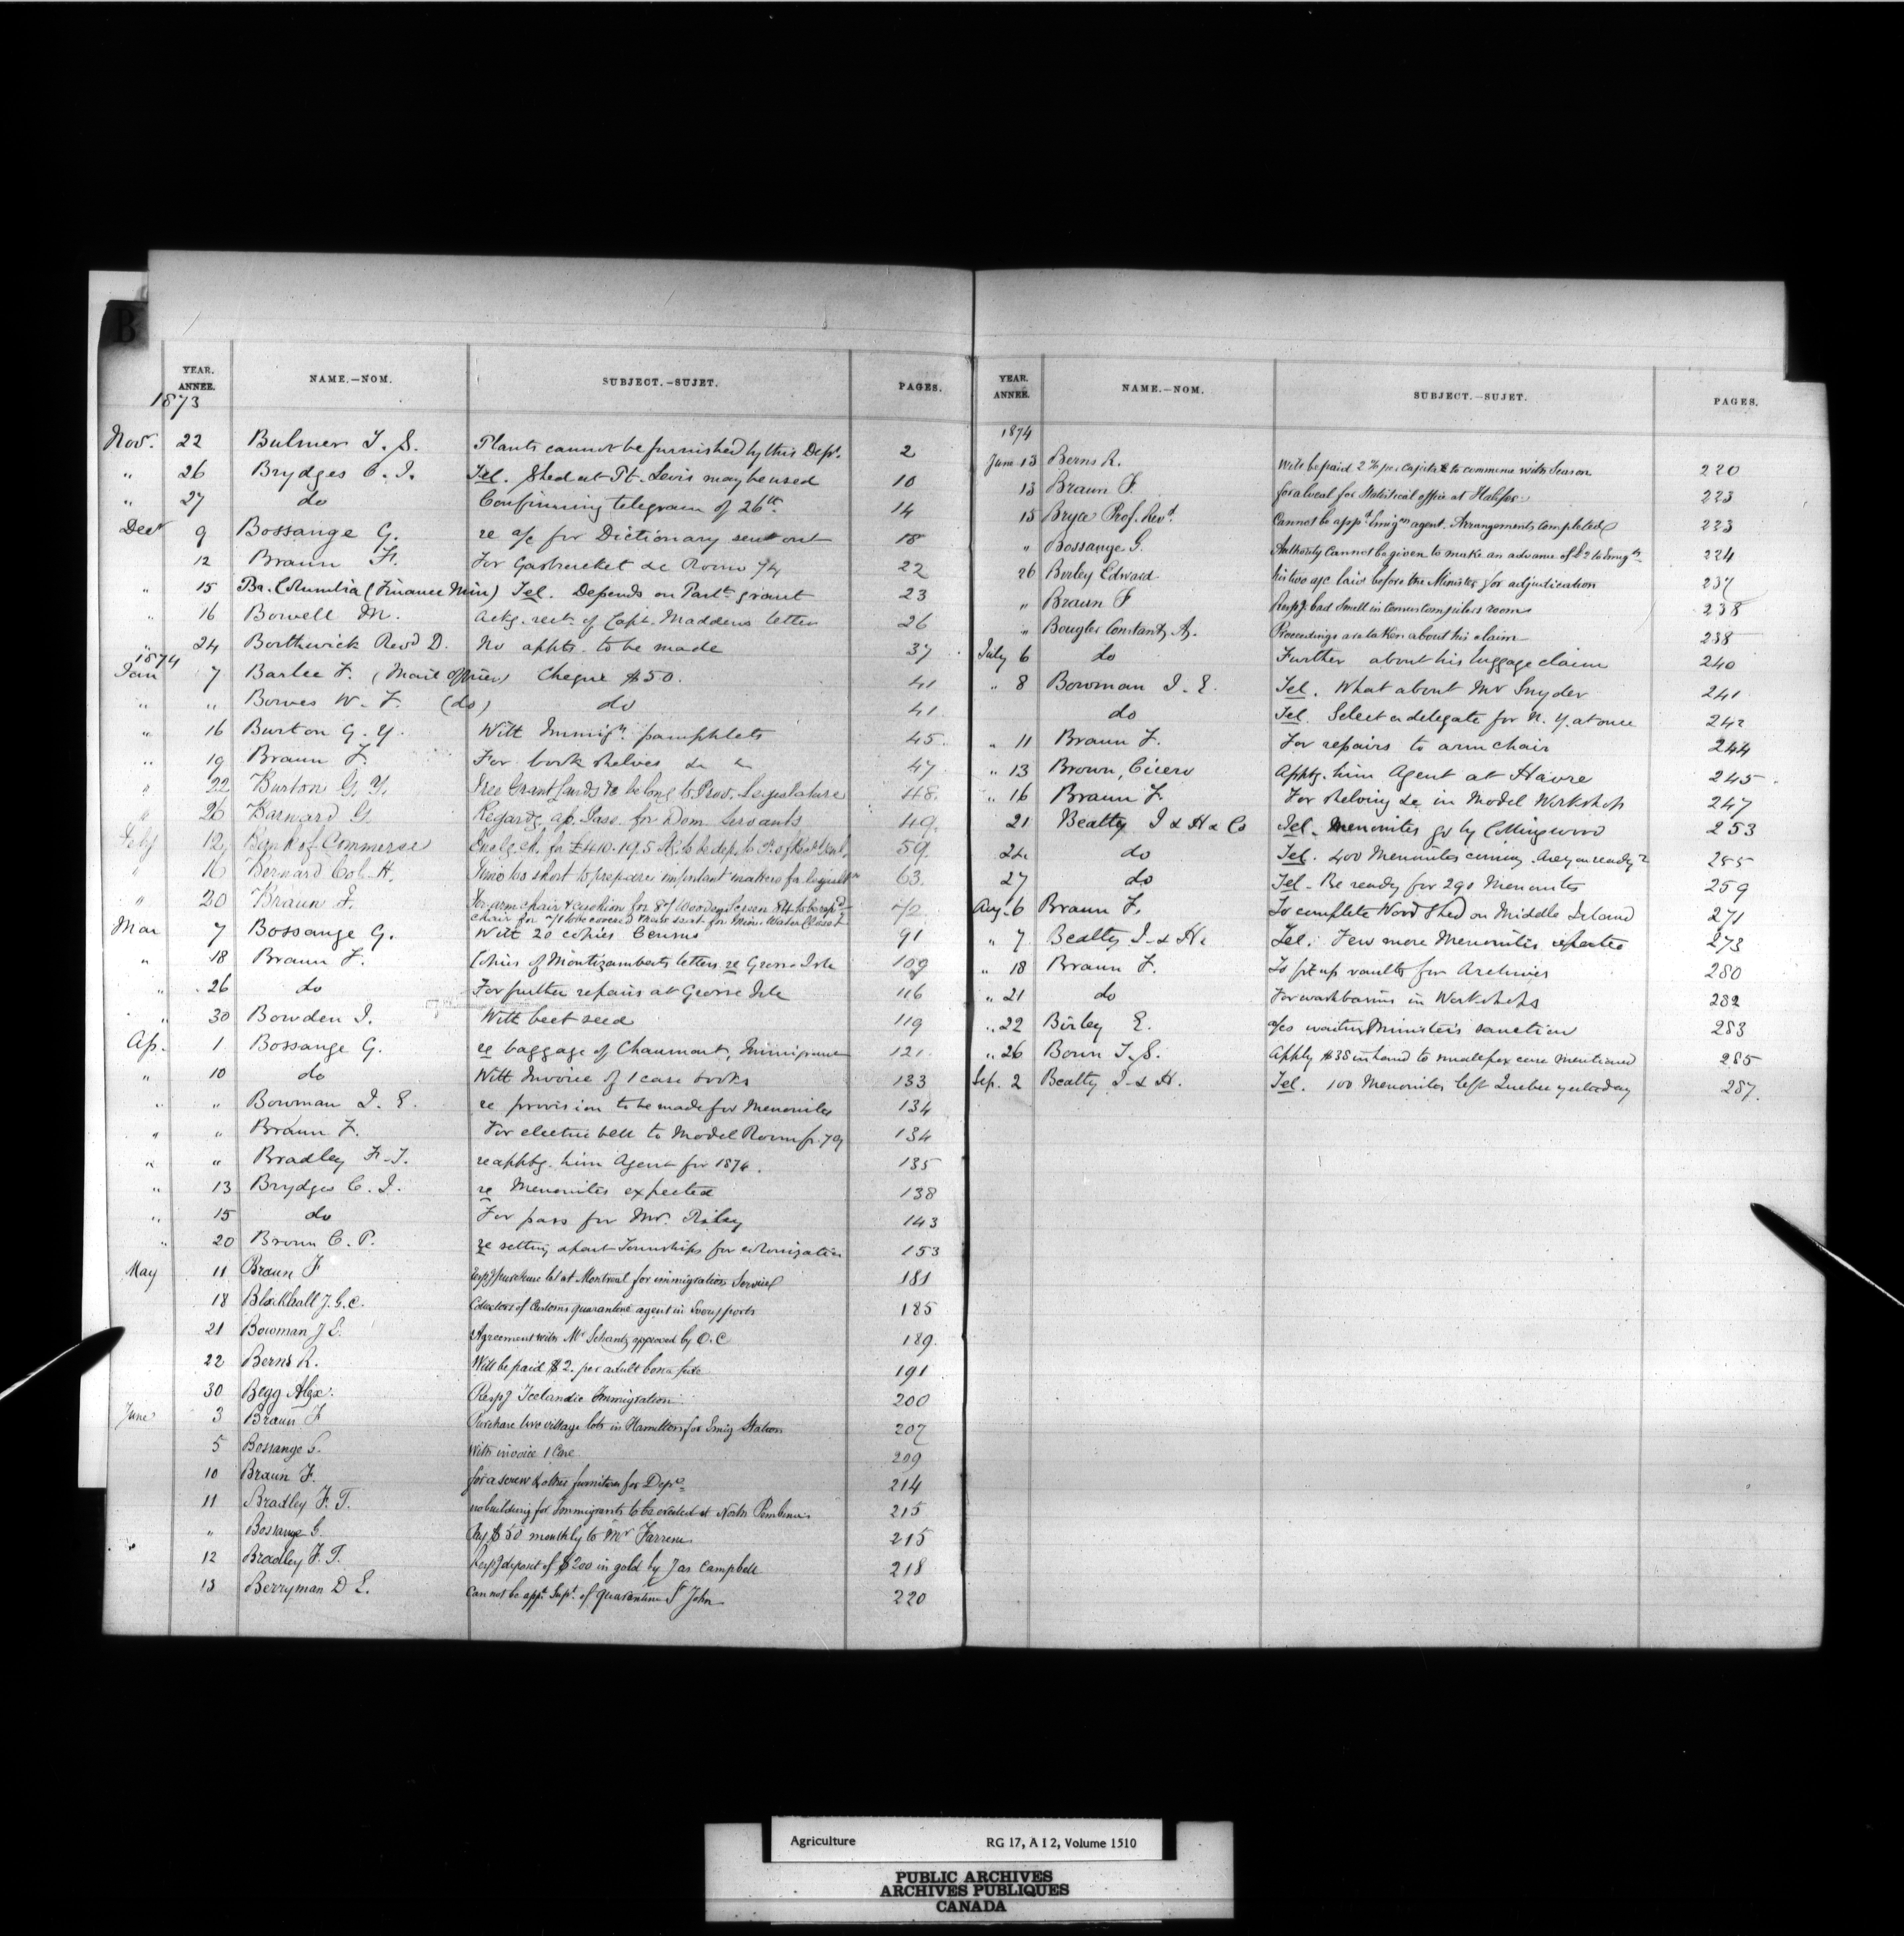 B
YEAR. ANNEE. NAME.—NOM. SUBJECT.—SUJET. PAGES.
1873
Nov. 22 Bulmer T. S. Plants cannot be furnished by this Dept. 2
" 26 Brydges C. J. Tel. Shed at Pt. Levis may be used 10
" 27 do Confirming telegram of 26th. 14
Decr 9 Bossange G. re a/c for Dictionary sent out 18
12 Braun F. For Gasbracket &c Room 74 22
" 15 Br. Columbia (Finance Min) Tel. Depends on Parlt. grant 23
" 16 Bowell M. Ackg. rect. of Capt. Maddens letter 26
" 24 Borthwick Revd D. No appts. to be made 37
1874
Jan 7 Barlee F. (Mail Officer) Cheque $50. 41
" " Bowes W. F. (do) do 41
" 16 Burton G. Y. With Immign. pamphlets 45
" 19 Braun F. For book shelves &c 47
" 22 Burton G. Y. Free Grant Lands &c belong to Prov. Legislature 48.
" 26 Barnard G. Regardg. ap. Pass. for Dom. Servants 49.
Feby 12 Bank of Commerce Enclg. ch. for £410.19.5 59.
" 16 Bernard Col. H. Time too short to prepare important matters for 63.
" 20 Braun F. For arm chair & cushion for
chair for to be covered Water Closet
Mar 7 Bossange G. With 20 copies Census 91
" 18 Braun F. Copies of Montizamberts letters re Grosse Isle 109
" 26 do For further repairs at Grosse Isle 116
" 30 Bowden J. With beet seed 119
Ap. 1 Bossange G. re baggage of Chaumont, Immigrant 121.
" 10 do With Invoice of 1 case books 133
" " Bowman I. E. re provision to be made for Menonites 134
" " Braun F. For electric bell to Model Room fr. 79 134
" " Bradley F. T. re apptg. him Agent for 1874. 135
" 13 Brydges C. J. re Menonites expected 138
" 15 do For pass for Mr. 143
" 20 Brown C. P. re setting apart Townships for colonization 153
May 11 Braun F Respg purchase lot at Montreal for immigration Service 181
18 Blackhall J. G. C. Collectors of Customs quarantine agent in Every ports 185
21 Bowman J E. Agreement with Mr Schantz approved by O.C 189.
22 Berns R. Will be paid $2. per adult bona fide 191
30 Begg Alex. Respg Icelandic Immigration. 200
June 3 Braun F Purchase two village lots in Hamilton for Emig Station 207
5 Bossange G. With invoice 1 Case 209
10 Braun F. for a screw & other furniture for Dept. 214
11 Bradley F. T. no building for Immigrants to be erected at North Pembina 215
" Bossange G. Pay $50 monthly to Mr Farrene 215
12 Bradley F. T. Respg deposit of $200 in gold by Jas Campbell 218
13 Berryman D E. Can not be appt. Supt. of quarantine St John 220
YEAR. ANNEE. NAME.—NOM. SUBJECT.—SUJET. PAGES.
1874
June 13 Berns R. Will be paid 2 % per capita to commence with Season 220
13 Braun F. for a local for Statistical office at Halifax 223
15 Bryce Prof. Revd. Cannot be appd Emign agent. Arrangements completed 223
" Bossange G. Authority cannot be given to make an advance of to Emigts 224
26 Borley Edward his two a/c laid before the Minister for adjudication 237
" Braun F Respg. bad smell in Census Compilers rooms 238
" Bougler Constant A. Proceedings are taken about his claim 238
July 6 do Further about his luggage claim 240
" 8 Bowman I. E. Tel. What about Mr Snyder 241
do Tel. Select a delegate for N. Y. at once 242
" 11 Braun F. For repairs to arm chair 244
" 13 Brown, Cicero Apptg. him Agent at Havre 245
" 16 Braun F. For shelving &c in Model Workshop 247
21 Beatty J & H & Co Tel. Menonites go by Collingwood 253
24 do Tel. 400 Menonites coming. Are you ready? 255
27 do Tel. Be ready for 290 Menonites 259
Aug. 6 Braun F. To complete Wood Shed on Middle Island 271
" 7 Beatty J. & H. Tel. Few more Menonites expected 273
" 18 Braun F. To fit up vaults for Archives 280
" 21 do For washbasins in Workshops 282
" 22 Birley E. a/cs waiting Minister's sanction 283
" 26 Bown T. S. Apply $38 in hand to small pox case mentioned 285
Sep. 2 Beatty J. & H. Tel. 100 Menonites left Quebec yesterday 287.
Agriculture RG 17, A I 2, Volume 1510
PUBLIC ARCHIVES
ARCHIVES PUBLIQUES
CANADA